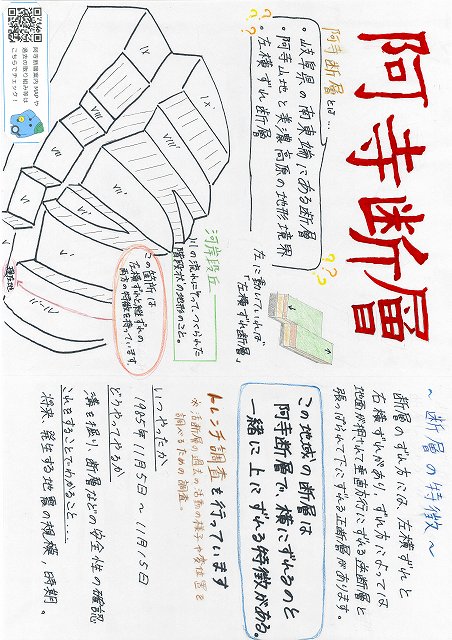 阿寺断層
阿寺断層とは…
・岐阜県の南東端にある断層
・阿寺山地と美濃高原の地形境界
・左横ずれ断層
???
???
左に動いていれば
「左横ずれ断層」
河岸段丘
川の流れによって、つくられた
階段状の地形のこと。
この箇所は
左横ずれと縦ずれの
両方の特徴を持っています。
現在地
IX
IX'
VIII
VIII'
VII
VII'
VI
VI'
V
阿寺断層案内MAPや
過去の取り組み等は
こちらでチェック!
~断層の特徴~
断層のずれ方には、左横ずれと
右横ずれがあり、ずれ方によっては
地面が押されて垂直方向にずれる逆断層と
張っぱられて下にずれる正断層があります。
この地域の断層は
阿寺断層で、横にずれるのと
一緒に上にずれる特徴がある。
トレンチ調査を行っています
→活断層の過去の活動の様子や変位置を
調べるための調査。
いつやったか
1985年11月5日~11月15日
どうやってやるか
溝を掘り、断層などの安全性の確認
これをすることでわかること…
将来、発生する地震の規模、時期。